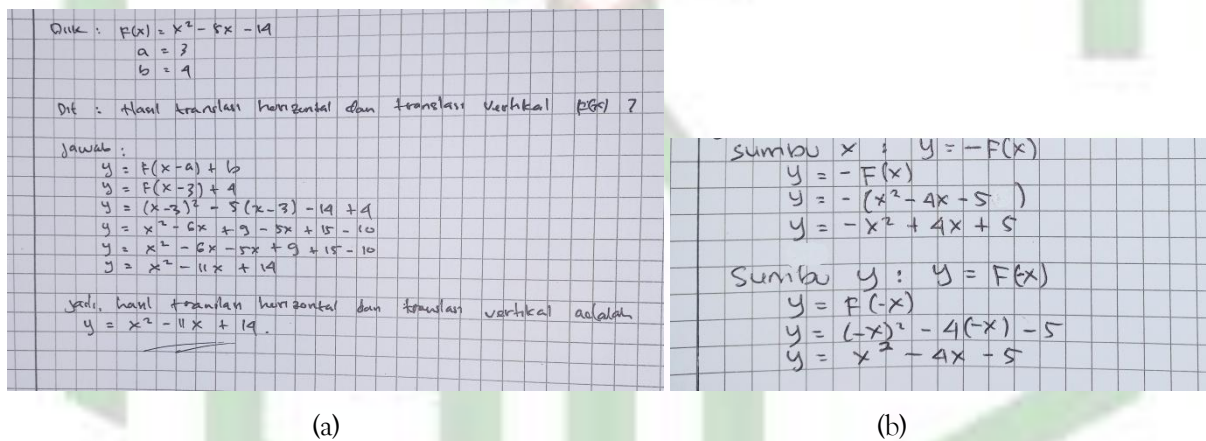 Dik : F(x) = x² - 5x - 14
a = 3
b = 4
Dit : Hasil translasi horizontal dan translasi vertikal F(x) ?
Jawab :
y = F(x-a) + b
y = F(x-3) + 4
y = (x-3)² - 5(x-3) - 14 + 4
y = x² - 6x + 9 - 5x + 15 - 10
y = x² - 6x - 5x + 9 + 15 - 10
y = x² - 11x + 14
Jadi, hasil translasi horizontal dan translasi vertikal adalah
y = x² - 11x + 14.
(a)
sumbu x : y = -F(x)
y = - F(x)
y = - (x² - 4x - 5 )
y = - x² + 4x + 5
Sumbu y : y = F(-x)
y = F(-x)
y = (-x)² - 4(-x) - 5
y = x² - 4x - 5
(b)